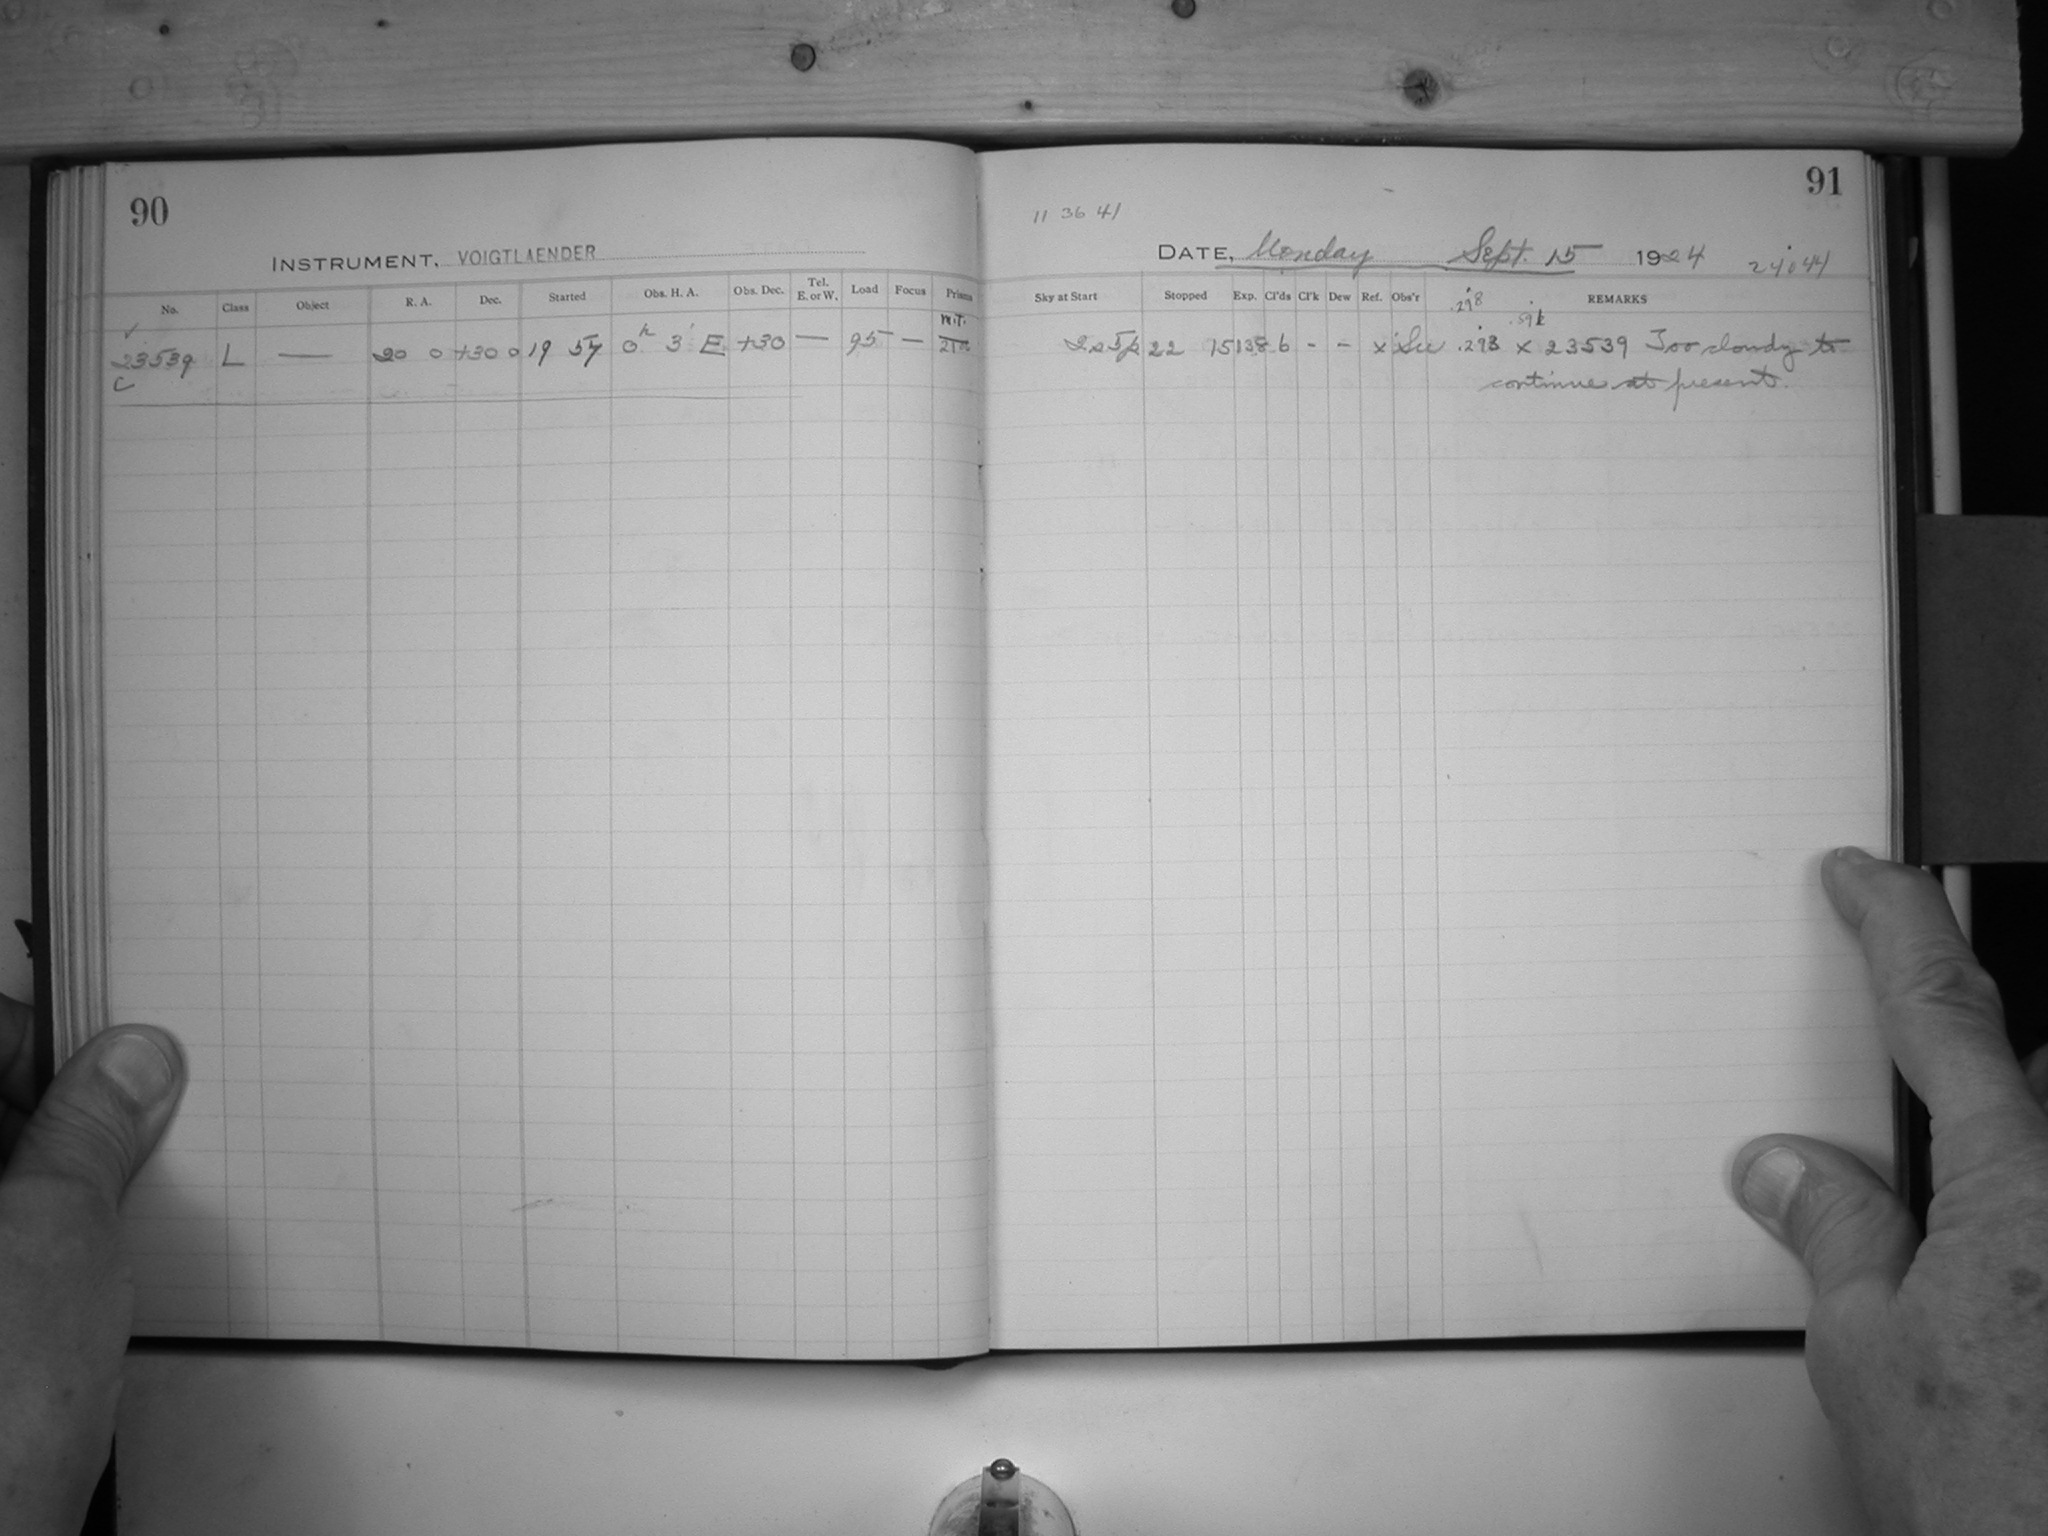 90
INSTRUMENT, VOIGTLAENDER
No. Class Object R. A. Dec. Started Obs. H. A. Obs. Dec. Tel. E. or W. Load Focus Prisms
M.T.
23539 L — 20 0 +30 0 19 57 0h 3' E +30 — 95 —
C
91
11 36 41
DATE, Monday Sept. 15 1924
Sky at Start Stopped Exp. Cl'ds Cl'k Dew Ref. Obs'r REMARKS
.298
22 15 138 6 - - x Su .293 x 23539 Too cloudy to
continue at present.